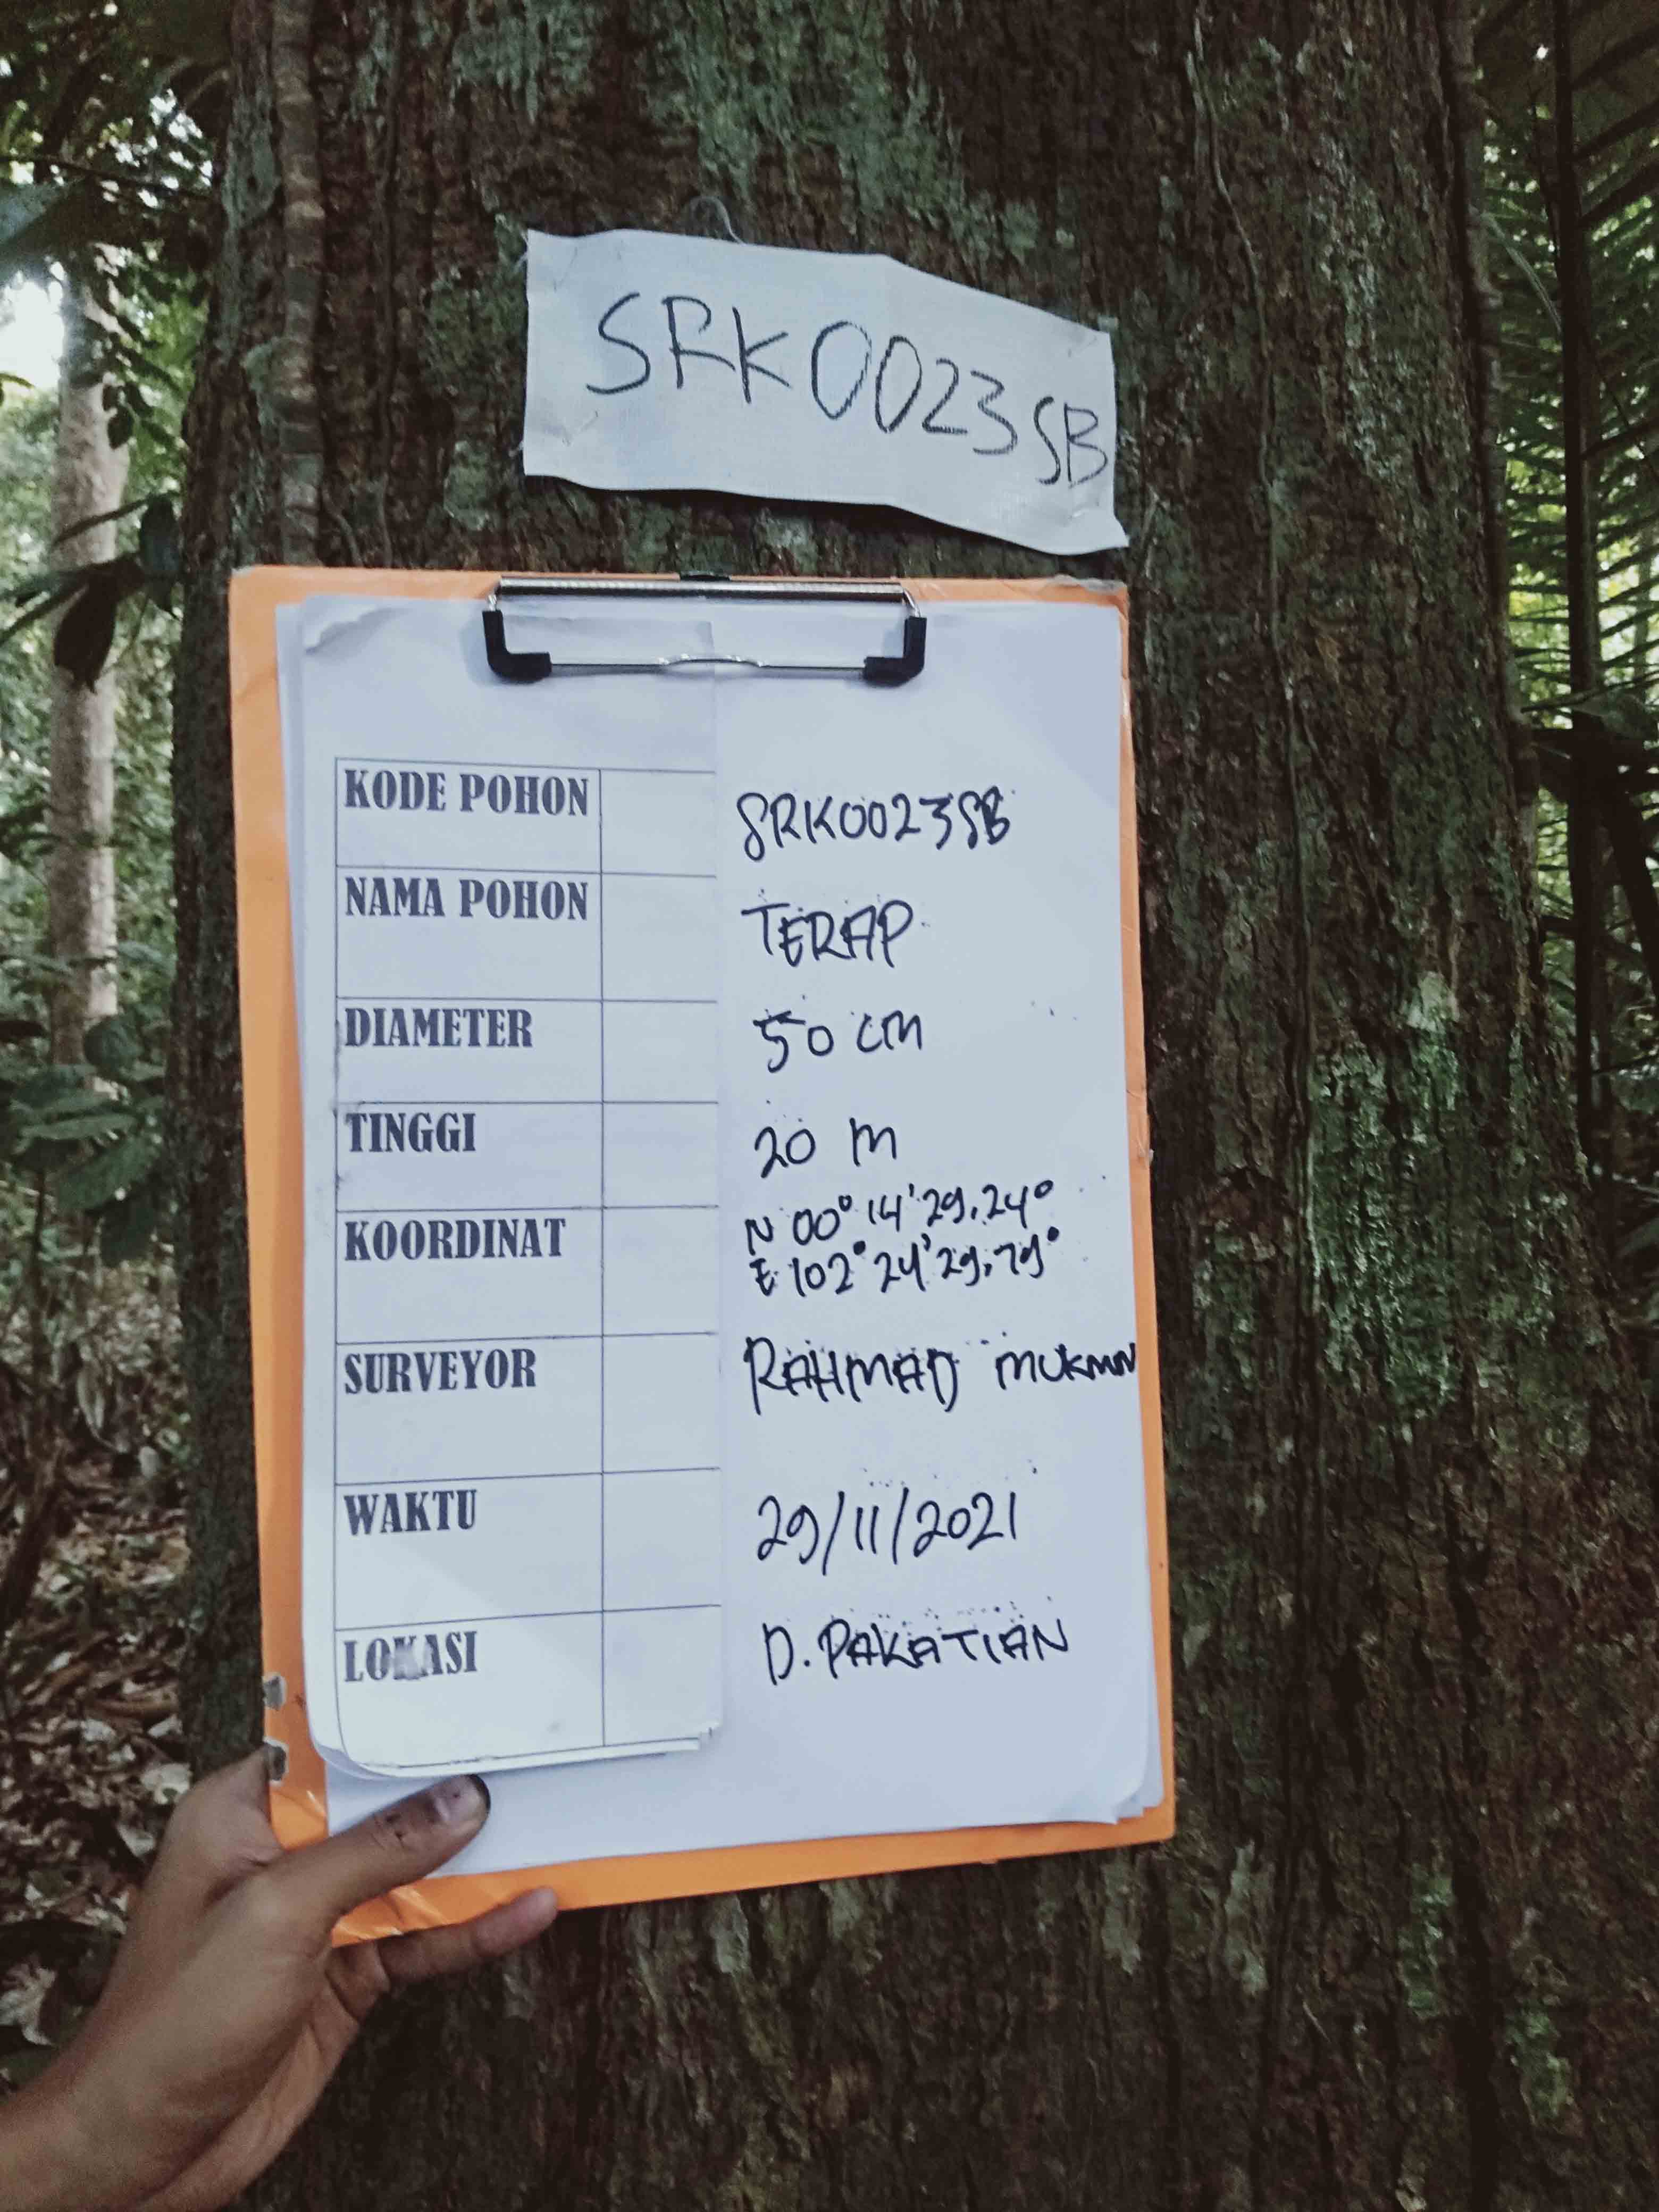 SRK0023SB
KODE POHON SRK0023SB
NAMA POHON TERAP
DIAMETER 50 cm
TINGGI 20 m
KOORDINAT N 00° 14' 29,24°
E 102° 24' 29,79°
SURVEYOR RAHMAD MUKMIN
WAKTU 29/11/2021
LOKASI D. PAKATIAN